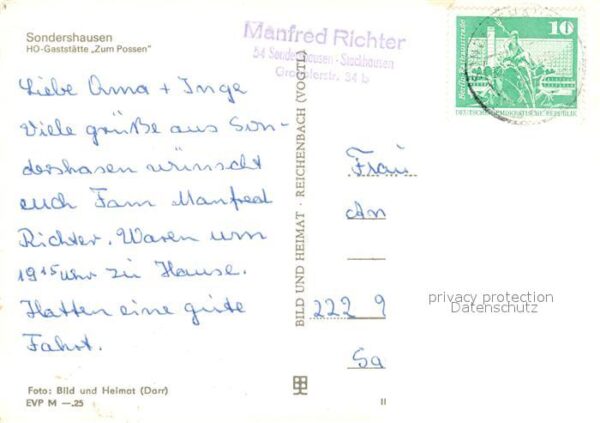 Sondershausen
HO-Gaststätte „Zum Possen“
Manfred Richter
54 Sondershausen - Stockhausen
34 b
Liebe Oma + Inge
Viele grüße aus Son-
dershasen wünscht
euch Fam Manfred
Richter. Waren um
19 15 Uhr zu Hause.
Hatten eine gute
Fahrt.
Foto: Bild und Heimat (Darr)
EVP M —.25
BILD UND HEIMAT · REICHENBACH (VOGTL)
10
DEUTSCHE DEMOKRATISCHE REPUBLIK
Frau
An
222 9
Sa
privacy protection
Datenschutz
II